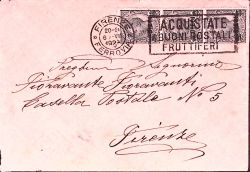 FIRENZE
FERROVIA
ACQUISTATE
BUONI POSTALI
FRUTTIFERI
Signorino
Fioravante Fioravanti
Casella Postale N° 5
Firenze